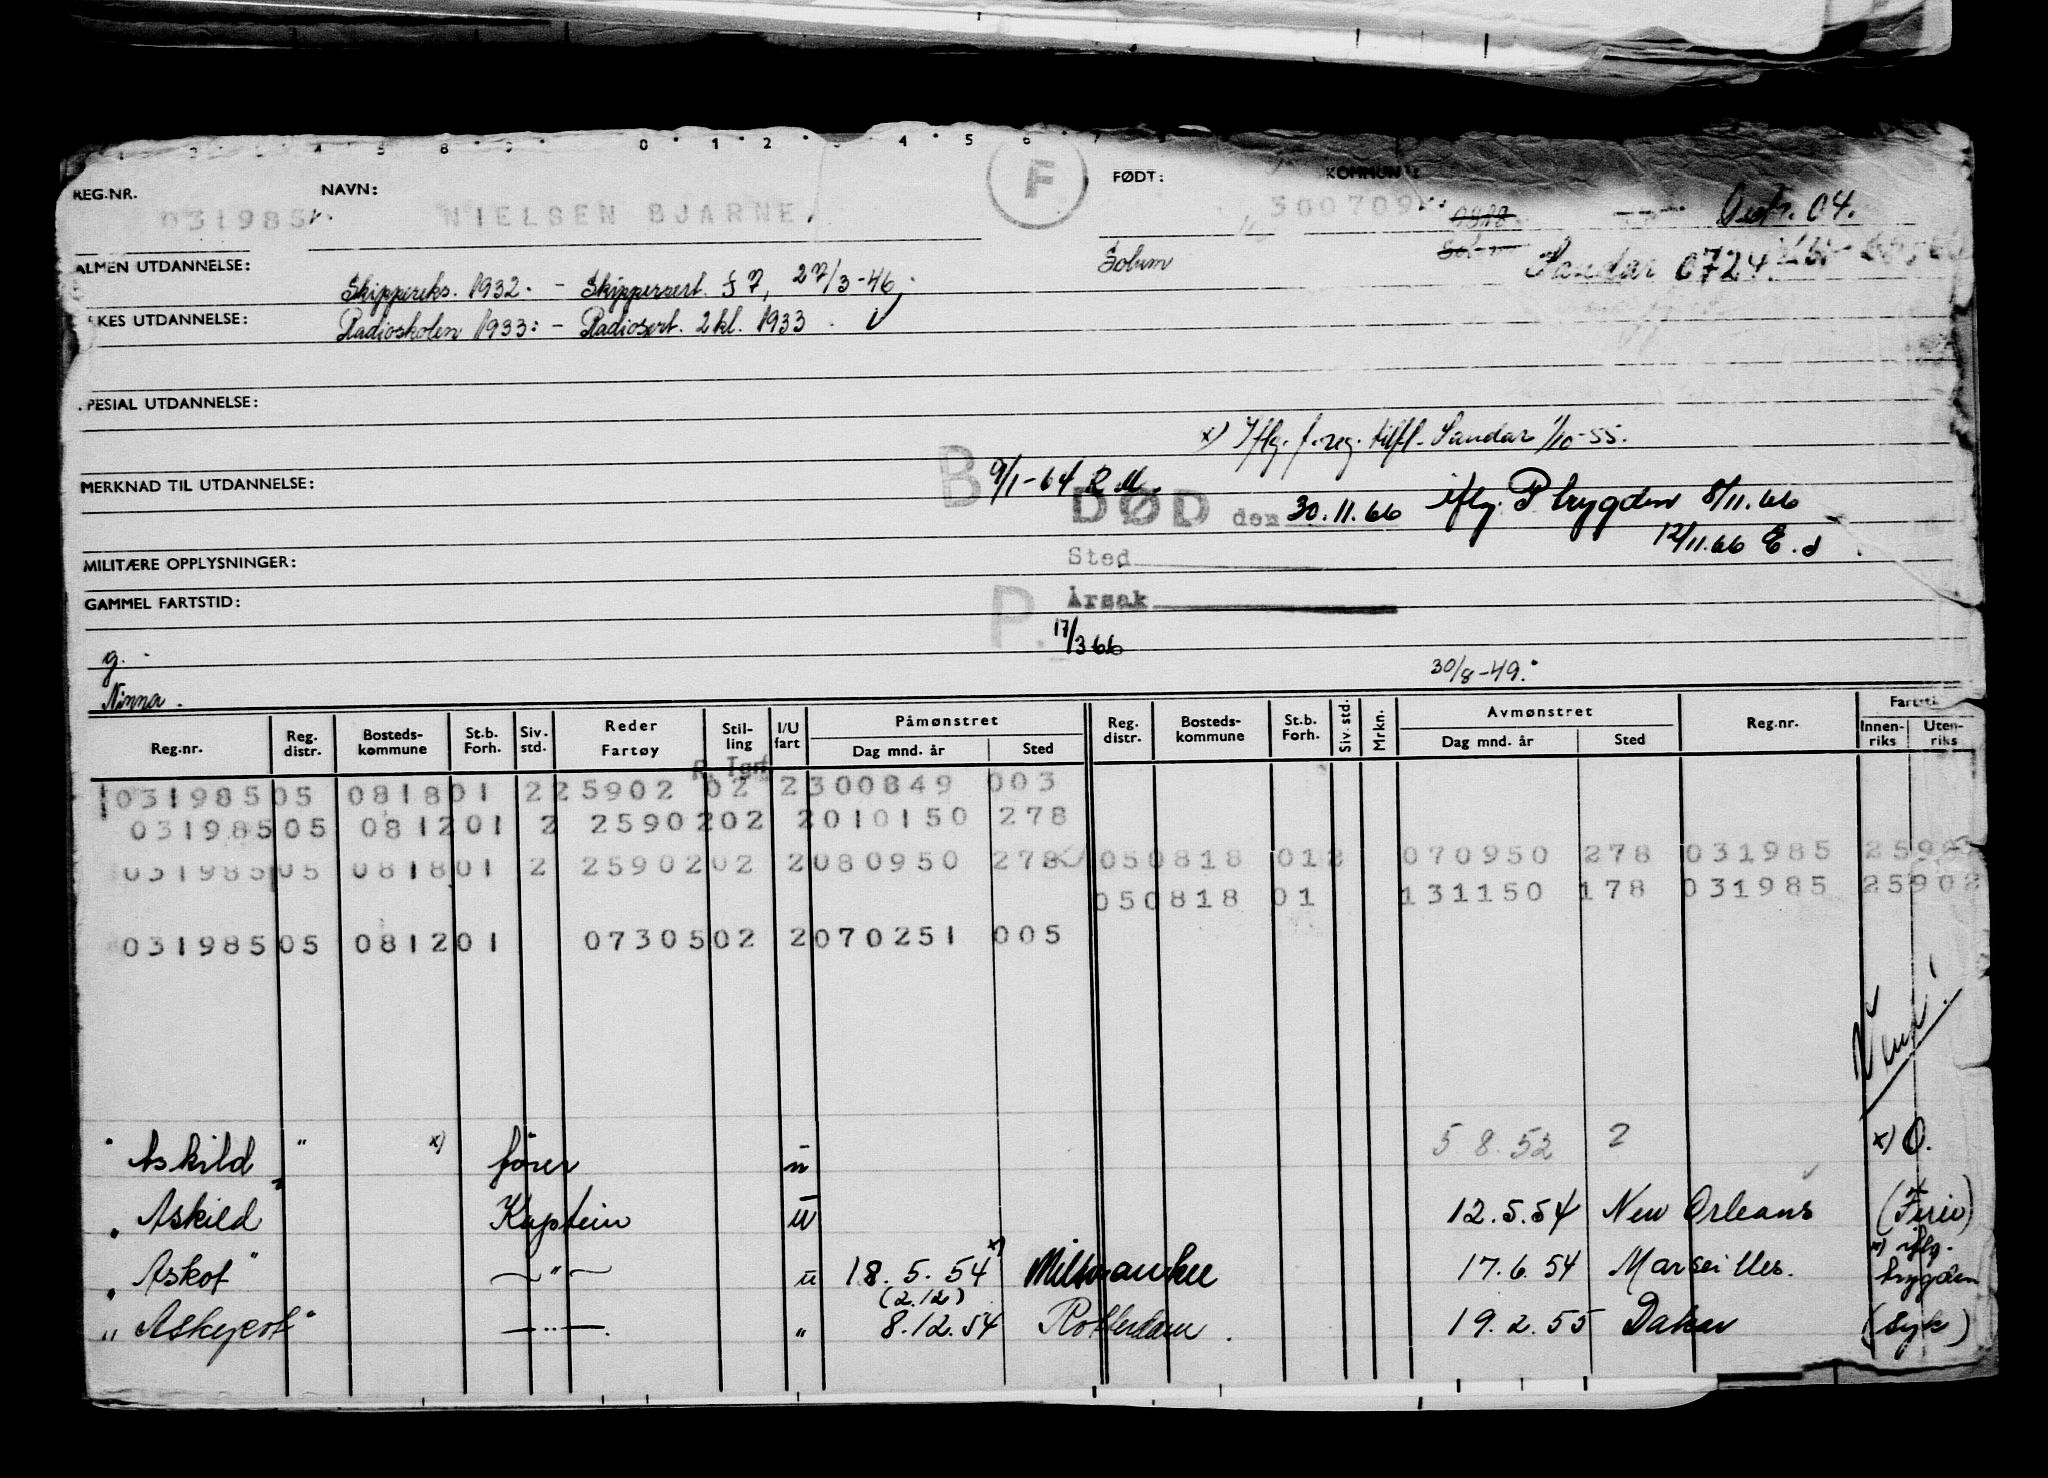 REG.NR. NAVN: F FØDT: KOMMUNE:
031985 NIELSEN BJARNE. 300709 0818 Distr. 04.
Solum Solum Sandar 0724
ALMEN UTDANNELSE: Skippereks. 1932. - Skippersert. 57, 27/3-46.
UTDANNELSE: Radioskolen 1933: - Radiosert. 2 kl. 1933.
SPESIAL UTDANNELSE:
x) Iflg. f.reg. tilfl. Sandar 1/10-55.
MERKNAD TIL UTDANNELSE: B 9/1-64 R.M.
DØD den 30.11.66 iflg. P trygden 8/11.66
12/11.66 E.d
MILITÆRE OPPLYSNINGER: Sted
GAMMEL FARTSTID: P. Årsak
17/3 66
g.
30/8-49.
Ninna.
Reg.nr. Reg. distr. Bosteds-kommune St.b. Forh. Siv. std. Reder Fartøy Stil-ling I/U fart Påmønstret Dag mnd. år Sted Reg. distr. Bosteds-kommune St.b. Forh. Siv. std. Mrkn. Avmønstret Dag mnd. år Sted Reg.nr. Innen-riks Uten-riks
031985 05 0818 01 2 25902 02 2 300849 003
031985 05 0812 01 2 25902 02 2 010150 278
031985 05 0818 01 2 25902 02 2 080950 278 05 0818 01 2 070950 278 031985 25902
05 0818 01 131150 178 031985 25902
031985 05 0812 01 07305 02 2 070251 005
Vend!
" Askild " x) fører u 5 8.52 2 x) O.
" Askild Kaptein u 12.5.54 New Orleans (Ferie)
" Askot " — " — u 18.5.54 x) Milwaukee 17.6.54 Marseilles. x) iflg. trygden
(2.12)
" Askepot " — " — " 8.12.54 Rotterdam. 19.2.55 Dakar (syk)